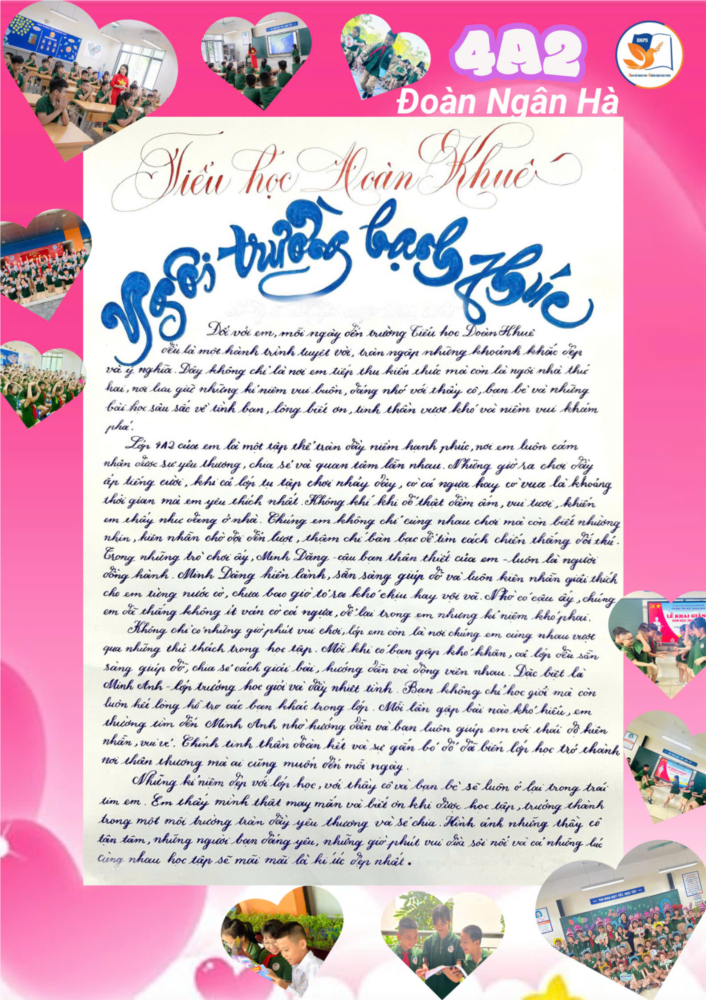 4A2
Đoàn Ngân Hà
Tiểu học Đoàn Khuê
Ngôi trường hạnh phúc
Đối với em, mỗi ngày đến trường Tiểu học Đoàn Khuê
đều là một hành trình tuyệt vời, tràn ngập những khoảnh khắc đẹp
và ý nghĩa. Đây không chỉ là nơi em tiếp thu kiến thức mà còn là ngôi nhà thứ
hai, nơi lưu giữ những kỉ niệm vui buồn, đáng nhớ với thầy cô, bạn bè và những
bài học sâu sắc về tình bạn, lòng biết ơn, tinh thần vượt khó và niềm vui khám
phá.
Lớp 4A2 của em là một tập thể tràn đầy niềm hạnh phúc, nơi em luôn cảm
nhận được sự yêu thương, chia sẻ và quan tâm lẫn nhau. Những giờ ra chơi đầy
ắp tiếng cười, khi cả lớp tụ tập chơi nhảy dây, cờ cá ngựa hay cờ vua là khoảng
thời gian mà em yêu thích nhất. Không khí khi đó thật đầm ấm, vui tươi, khiến
em thấy như đang ở nhà. Chúng em không chỉ cùng nhau chơi mà còn biết nhường
nhịn, kiên nhẫn chờ đợi đến lượt, thậm chí bàn bạc để tìm cách chiến thắng đối thủ.
Trong những trò chơi ấy, Minh Đăng - cậu bạn thân thiết của em - luôn là người
đồng hành. Minh Đăng hiền lành, sẵn sàng giúp đỡ và luôn kiên nhẫn giải thích
cho em từng nước cờ, chưa bao giờ tỏ ra khó chịu hay vội vã. Nhờ có cậu ấy, chúng
em đã thắng không ít ván cờ cá ngựa, để lại trong em những kỉ niệm khó phai.
Không chỉ có những giờ phút vui chơi, lớp em còn là nơi chúng em cùng nhau vượt
qua những thử thách trong học tập. Mỗi khi có bạn gặp khó khăn, cả lớp đều sẵn
sàng giúp đỡ, chia sẻ cách giải bài, hướng dẫn và động viên nhau. Đặc biệt là
Minh Anh - lớp trưởng học giỏi và đầy nhiệt tình. Bạn không chỉ học giỏi mà còn
luôn hết lòng hỗ trợ các bạn khác trong lớp. Mỗi lần gặp bài nào khó hiểu, em
thường tìm đến Minh Anh nhờ hướng dẫn và bạn luôn giúp em với thái độ kiên
nhẫn, vui vẻ. Chính tinh thần đoàn kết và sự gắn bó đó đã biến lớp học trở thành
nơi thân thương mà ai cũng muốn đến mỗi ngày.
Những kỉ niệm đẹp với lớp học, với thầy cô và bạn bè sẽ luôn ở lại trong trái
tim em. Em thấy mình thật may mắn và biết ơn khi được học tập, trưởng thành
trong một môi trường tràn đầy yêu thương và sẻ chia. Hình ảnh những thầy cô
tận tâm, những người bạn đáng yêu, những giờ phút vui đùa sôi nổi và cả những lúc
cùng nhau học tập sẽ mãi mãi là kí ức đẹp nhất.
LỄ KHAI GIẢNG